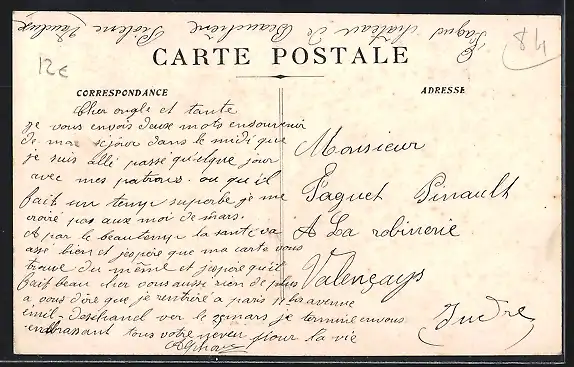 E Paquet château de Beauchiere Piolene Vaucluse
84
CARTE POSTALE
12€
CORRESPONDANCE
ADRESSE
Cher ongle et tante
je vous envois deux mots ensouvenir
de mon sejour dans le midi que
je suis allé passé quelque jour
avec mes patrons. ou qu'il
fait un temp superbe je me
croiré pas aux moi de mars.
A par le beautemp la santé va
assé bien et jespoire que ma carte vous
trouve du même et jespoire qu'il
fait beau cher vous aussi rien de plus
a vous dire que je rentreré a paris 11 bis avenue
emil-deschanel ver le 25 mars je termine envous
enbrassant tous votre neveu pour la vie
Alphonse
Monsieur
Paquet Pinault
A La robinerie
Valençays
Indre